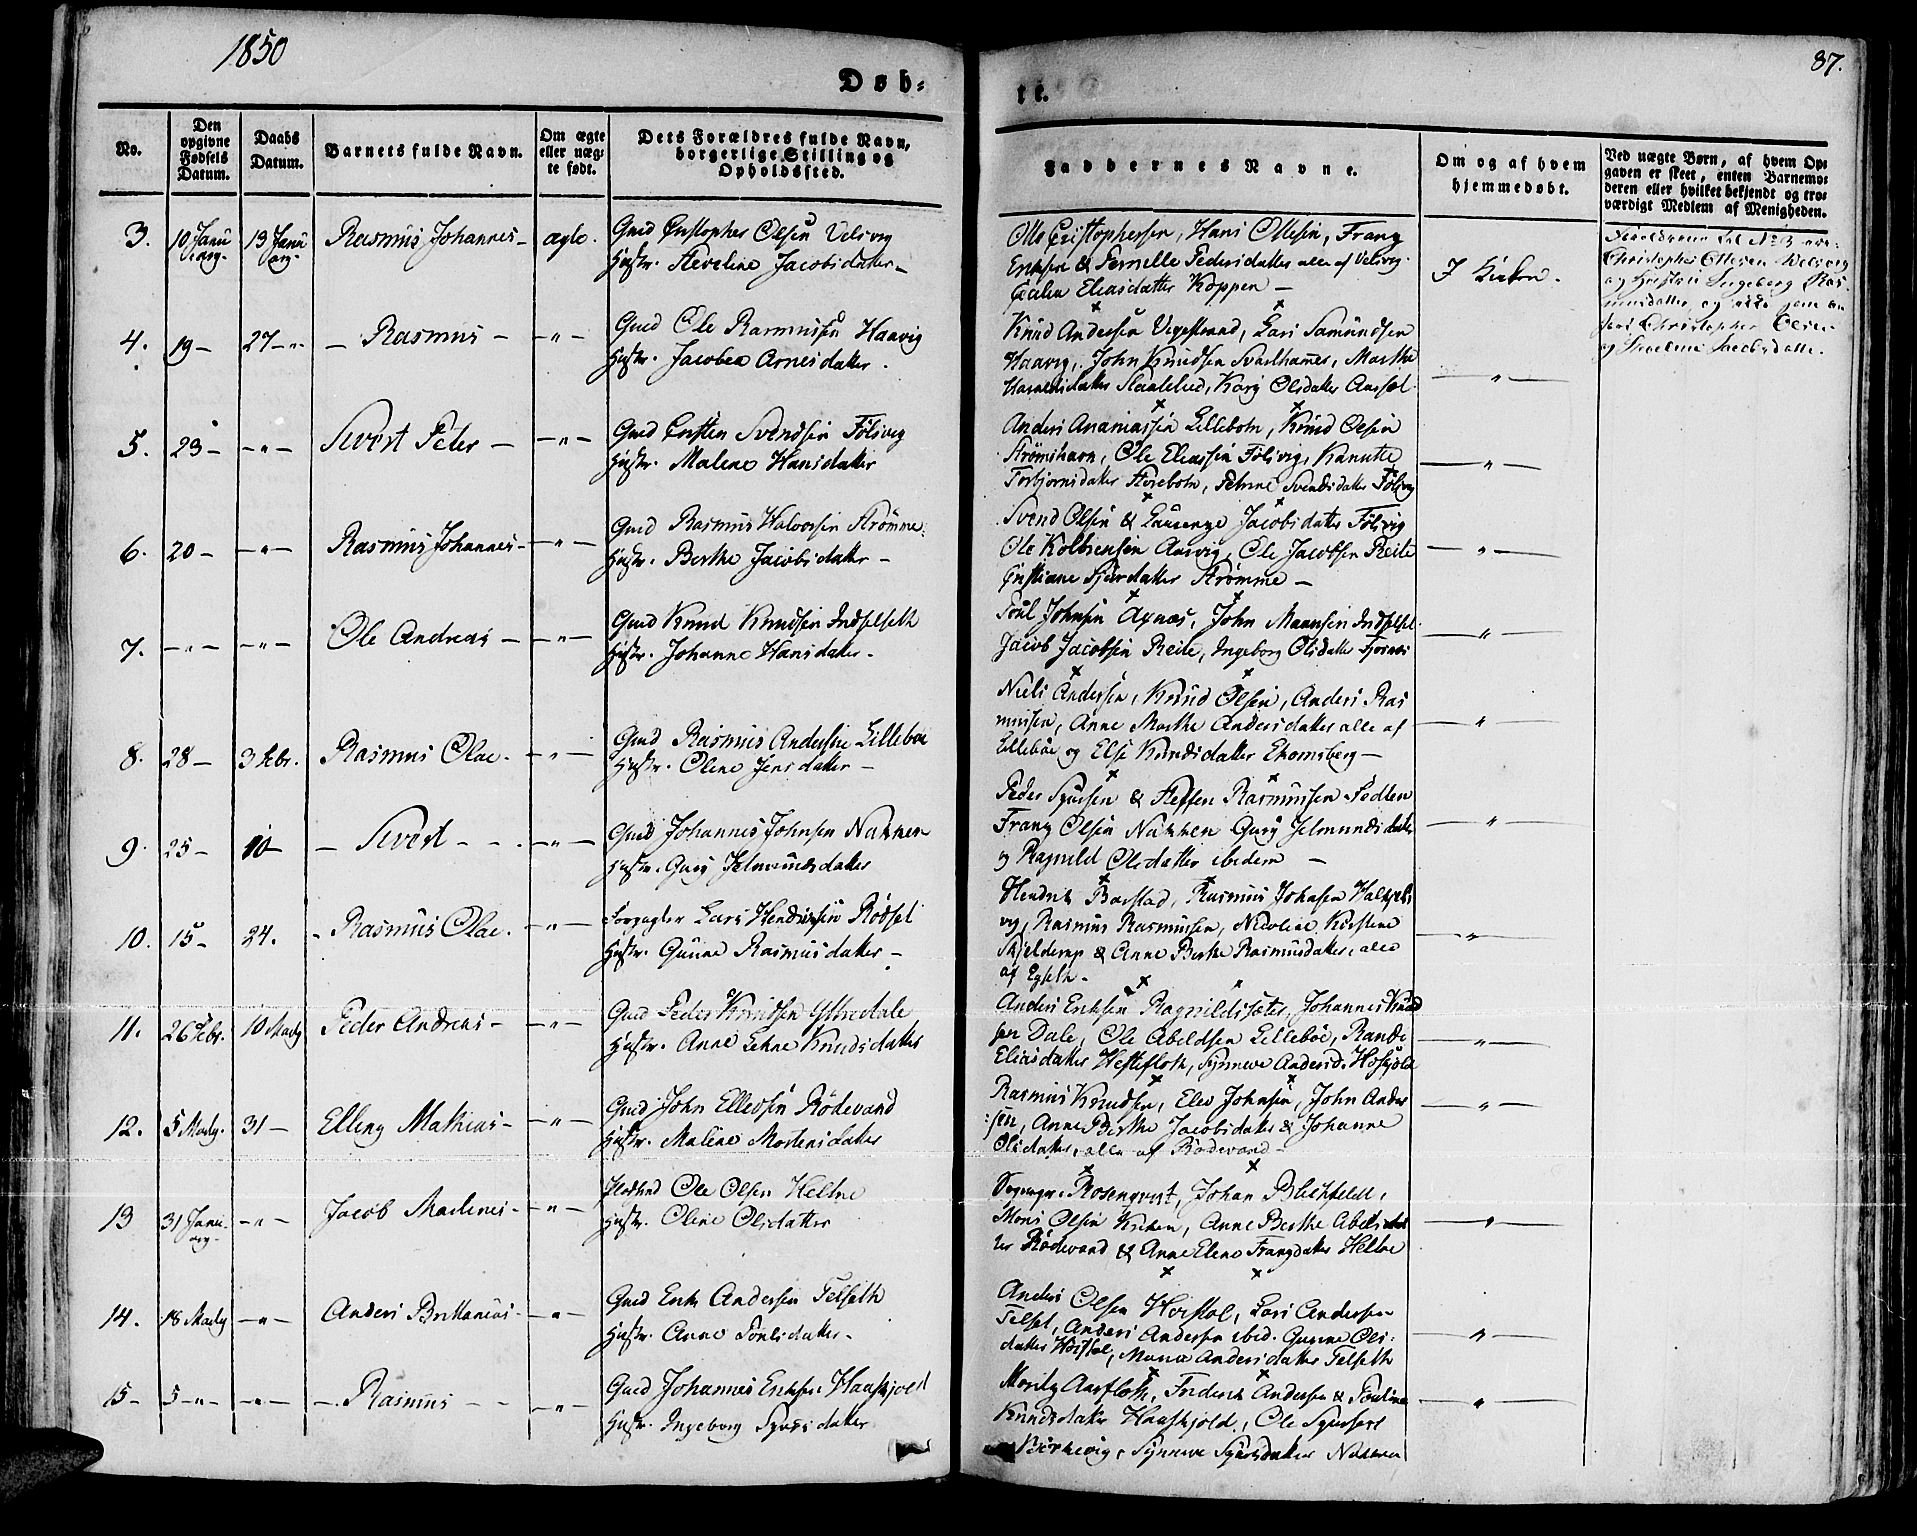 1850
87.
Døb-
te.
No.
Den opgivne Fødsels Datum.
Daabs Datum.
Barnets fulde Navn.
Om ægte eller uægte født.
Dets Forældres fulde Navn, borgerlige Stilling og Opholdssted.
Faddernes Navne.
Om og af hvem hjemmedøbt.
Ved uægte Børn, af hvem Opgaven er skeet, enten Barnemoderen eller hvilket bekjendt og troværdigt Medlem af Menigheden.
3. 10 Janu arg. 13 Janu arg. Rasmus Johannes - ægte. Gmd Cristopher Olsen Velsvig
Hustr. Steveline Jacobsdatter -
Otto Cristophersen, Hans Ottesen, Franz
Eriksen & Pernelle Pedersdatter alle af Velsvig.
Eliasdatter Koppen -
I Kirken.
Forældrene til No 3 ere:
Christopher Ottesen Velsvig
og Hustru Ingeberg Ras-
musdatter, og ikke som an
ført Christopher Olsen
og Steveline Jacobsdatter.
4. 19 - 27 - " - Rasmus - - " - Gmd Ole Rasmussen Haavig
Hustr. Jacobea Arnesdatter.
Knud Andersen Vegestrand, Lars Samundsen
Haavig, John Knudsen Svarthamer, Marthe
Haraldsdatter, Kari Olsdatter Aarset.
- " -
5. 23 - - " - Sivert Peter - - " - Gmd Cristen Svendsen Følsvig
Hustr. Malene Hansdatter
Anders Ananiassen Lillebøe, Knud Olsen
Strømshavn, Ole Eliassen Følsvig, Kanutte
Torbjørnsdatter Storebøe, Petrine Svendsdatter Følsvig
- " -
6. 20 - - " - Rasmus Johannes - - " - Gmd Rasmus Halvorsen Strømme.
Hustr. Berthe Jacobsdatter -
Svend Olsen & Laurenze Jacobsdatter Følsvig
Ole Kolbensen Aarvig, Ole Jacobsen Reite
Cristiane Sjursdatter Strømme -
- " -
7. - " - - " - Ole Andreas - - " - Gmd Knud Knudsen Indselseth
Hustr. Johanne Hansdatter -
Poul Johnsen Axnæs, John Maansen Indselset
Jacob Jacobsen Reite, Ingeborg Olsdatter
- " -
8. 28 - 3 Febr. Rasmus Olae. - " - Gmd Rasmus Andersen Lillebøe
Hustr. Oline Jensdatter -
Niels Andersen, Knud Olsen, Anders Ras
mussen, Anne Marthe Andersdatter alle af
Lillebøe og Else Knudsdatter Ekornsberg -
- " -
9. 25 - 10 - - Sivert - - . - " - Gmd Johannes Johnsen Nakken
Hustr. Gury Jelmundsdatter
Peder Syversen & Steffen Rasmussen
Franz Olsen Nakken Gury Jelmundsdatter
og Ragnild Olsdatter ibidem -
- " -
10. 15 - 24. - Rasmus Olae. - " - Forpagter Lars Hendriksen Rødset
Hustr. Gunne Rasmusdatter -
Hendrik Barstad, Rasmus Johnsen
vig, Rasmus Rasmussen, Nicoline Kirstine
Skjelderup & Anne Berthe Rasmusdatter, alle
af Egseth -
- " -
11. 26 Febr. 10 Martz Peder Andreas - - " - Gmd Peder Knudsen Ytredale
Hustr. Anne Lehne Knudsdatter
Anders Eriksen Ragnildsæter, Johannes Knud
sen Dale, Ole Abeldsen Lillebøe, Rande
Eliasdatter Hestefloth, Synneve Andersd. Haskjold
- " -
12. 5 Martz. 31 - Elling Mathias - - " - Gmd John Ellevsen Rødevand
Hustr. Malene Mortensdatter
Rasmus Knudsen, Elev Johnsen, John Ander
sen, Anne Berthe Jacobsdatter & Johanne
Olsdatter, alle af Rødevand -
- " -
13 31 Janu- arg - - " - Jacob Martinus - - " - Ole Olsen Heltne
Hustr. Oline Olsdatter
Sognepr. Rosenqvist, Johan Blichfeldt,
Mons Olsen Kirken, Anne Berthe Abelsdat
ter Rødevand & Anne Elene Franzdatter Heltne
- " -
14. 18 Martz - " - Anders Brittanius - - " - Gmd Erik Andersen Telseth
Hustr. Anne Poulsdatter -
Anders Olsen, Lars Andersen
Telset, Anders Andersen ibid. Gunne Ols-
datter, Maria Andersdatter Telseth
- " -
15 - 5 - " - - " - - Rasmus - - - " - Gmd Johannes Eriksen Haaskjold
Hustr. Ingeborg Syversdatter
Moritz Aarfloth, Frederik Andersen & Pouline
Knudsdatter Haaskjold, Ole Syversen
Birkevig, Synneve Syversdatter Nakken
- " -